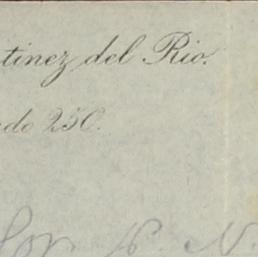 tinez del Rio.
do 250.
Sor N. N.